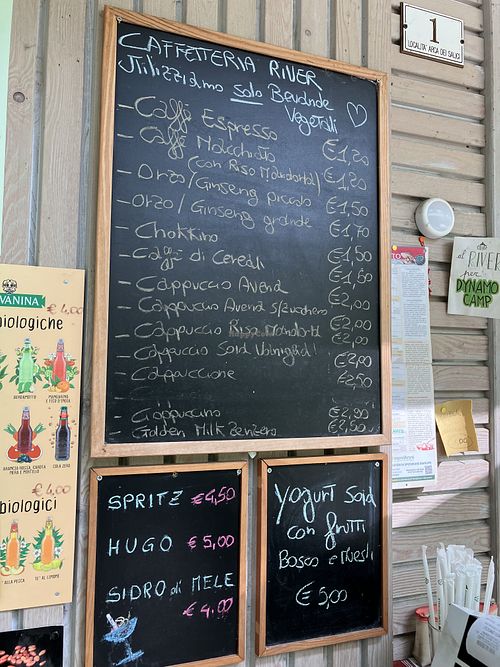 CAFFETTERIA RIVER
Utilizziamo solo Bevande
Vegetali
- Caffè Espresso €1,20
- Caffè Macchiato
(con Riso Mandorla) €1,20
- Orzo/Ginseng piccolo €1,50
- Orzo/Ginseng grande €1,70
- Chokkino €1,50
- Caffè di Cereali €1,60
- Cappuccio Avena €2,00
- Cappuccio Avena s/zucchero €2,00
- Cappuccio Riso Mandorla €2,00
- Cappuccio Soia €2,00
- Cappuccione €2,50
- €2,90
- Golden Milk Zenzero €2,50
SPRITZ €4,50
HUGO €5,00
SIDRO di MELE
€4.00
Yogurt Soia
con frutti
Bosco e Muesli
€5,00
1
LOCALITÀ ARCA DEI SALICI
al RIVER
per
DYNAMO
CAMP
VANINA
€4,00
biologiche
BERGAMOTTO
MANDARINO
E FICO D'INDIA
ARANCIA ROSSA, CAROTA
NERA E MIRTILLO
COLA ZERO
€4,00
biologici
TE' ALLA PESCA
TE' AL LIMONE